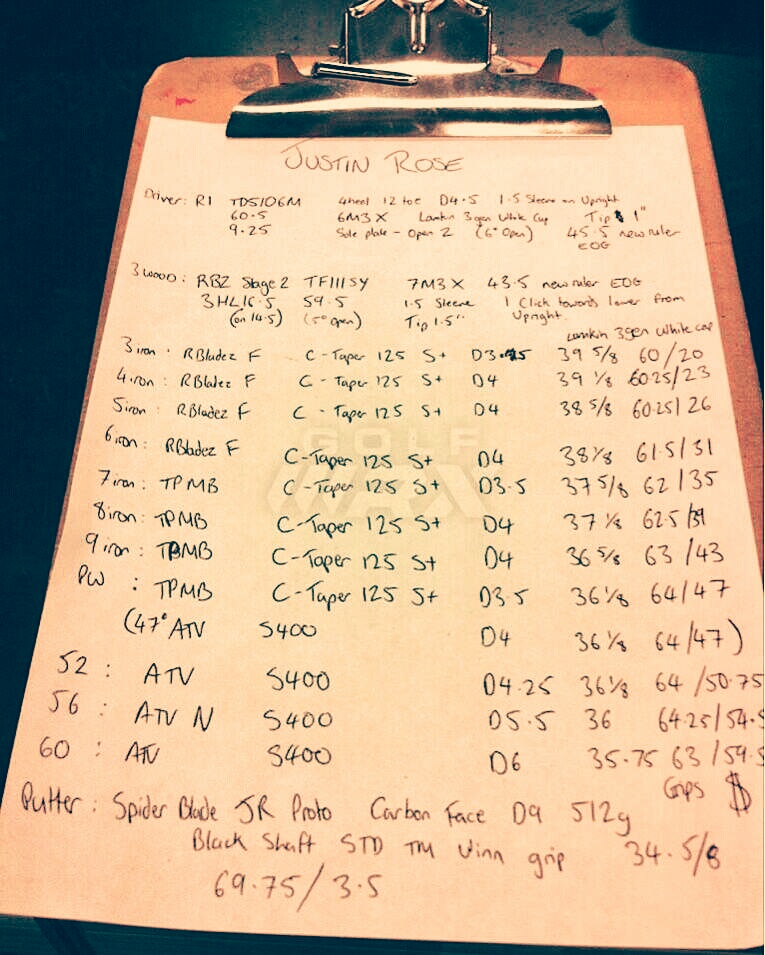 JUSTIN ROSE
Driver: R1 TDS106M 4heel 12 toe D4.5 1.5 Sleeve on Upright
60.5 6M3X Lamkin 3gen White Cap Tip 1"
9.25 Sole plate - Open 2 (6° Open) 45.5 new ruler
EOG
3 wood: RBZ Stage 2 TF111SY 7M3X 43.5 new ruler EOG
3HL 16.5 59.5 1.5 Sleeve 1 Click towards lower from
(on 14.5) (5° open) Tip 1.5" Upright.
Lamkin 3gen White cap
3 iron: RBladez F C-Taper 125 S+ D3.75 39 5/8 60/20
4 iron: RBladez F C-Taper 125 S+ D4 39 1/8 60.25/23
5 iron: RBladez F C-Taper 125 S+ D4 38 5/8 60.25/26
6 iron: RBladez F C-Taper 125 S+ D4 38 1/8 61.5/31
7 iron: TPMB C-Taper 125 S+ D3.5 37 5/8 62/35
8 iron: TPMB C-Taper 125 S+ D4 37 1/8 62.5/39
9 iron: TPMB C-Taper 125 S+ D4 36 5/8 63/43
PW: TPMB C-Taper 125 S+ D3.5 36 1/8 64/47
(47° ATV S400 D4 36 1/8 64/47)
52: ATV S400 D4.25 36 1/8 64/50.75
56: ATV N S400 D5.5 36 64.25/54.5
60: ATV S400 D6 35.75 63/59.5
Grips $
Putter: Spider Blade JR Proto Carbon Face D9 512g
Black Shaft STD TM Winn grip 34.5/8
69.75/3.5
GOLF
WRX